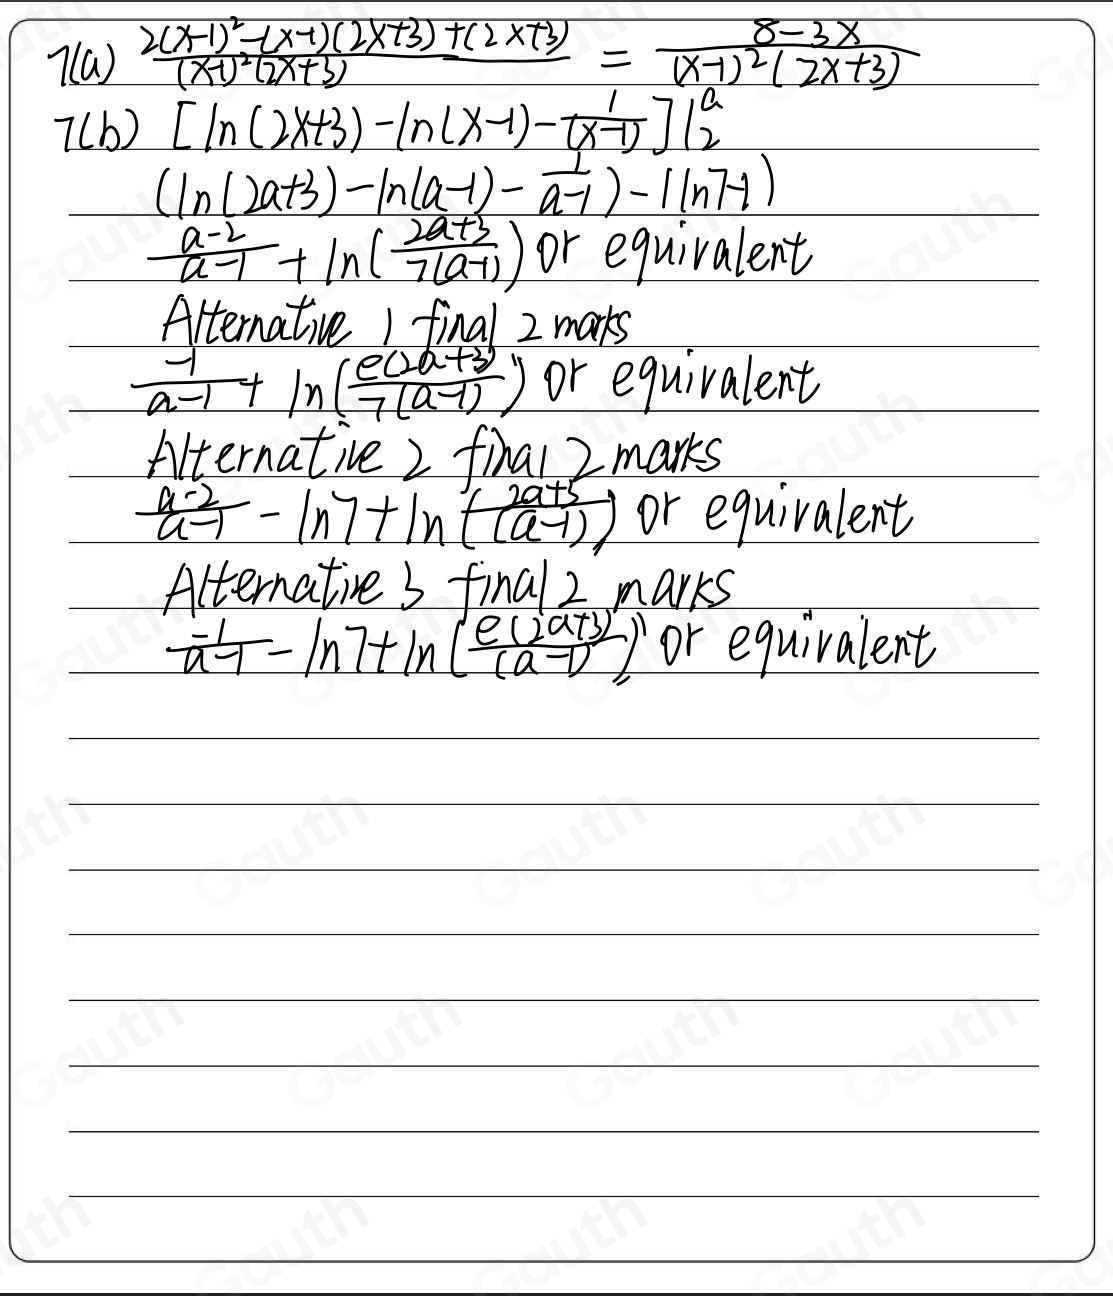 7(a) \frac{2(x-1)^2-(x-1)(2x+3)+(2x+3)}{(x-1)^2(2x+3)} = \frac{8-3x}{(x-1)^2(2x+3)}
7(b) [ln(2x+3)-ln(x-1)-\frac{1}{(x-1)}]|_2^a
(ln(2a+3)-ln(a-1)-\frac{1}{a-1})-(ln7-1)
\frac{a-2}{a-1}+ln(\frac{2a+3}{7(a-1)}) or equivalent
Alternative 1 final 2 marks
\frac{-1}{a-1}+ln(\frac{e(2a+3)}{7(a-1)}) or equivalent
Alternative 2 final 2 marks
\frac{a-2}{a-1}-ln7+ln(\frac{2a+3}{(a-1)}) or equivalent
Alternative 3 final 2 marks
\frac{-1}{a-1}-ln7+ln(\frac{e(2a+3)}{(a-1)}) or equivalent
Gauth